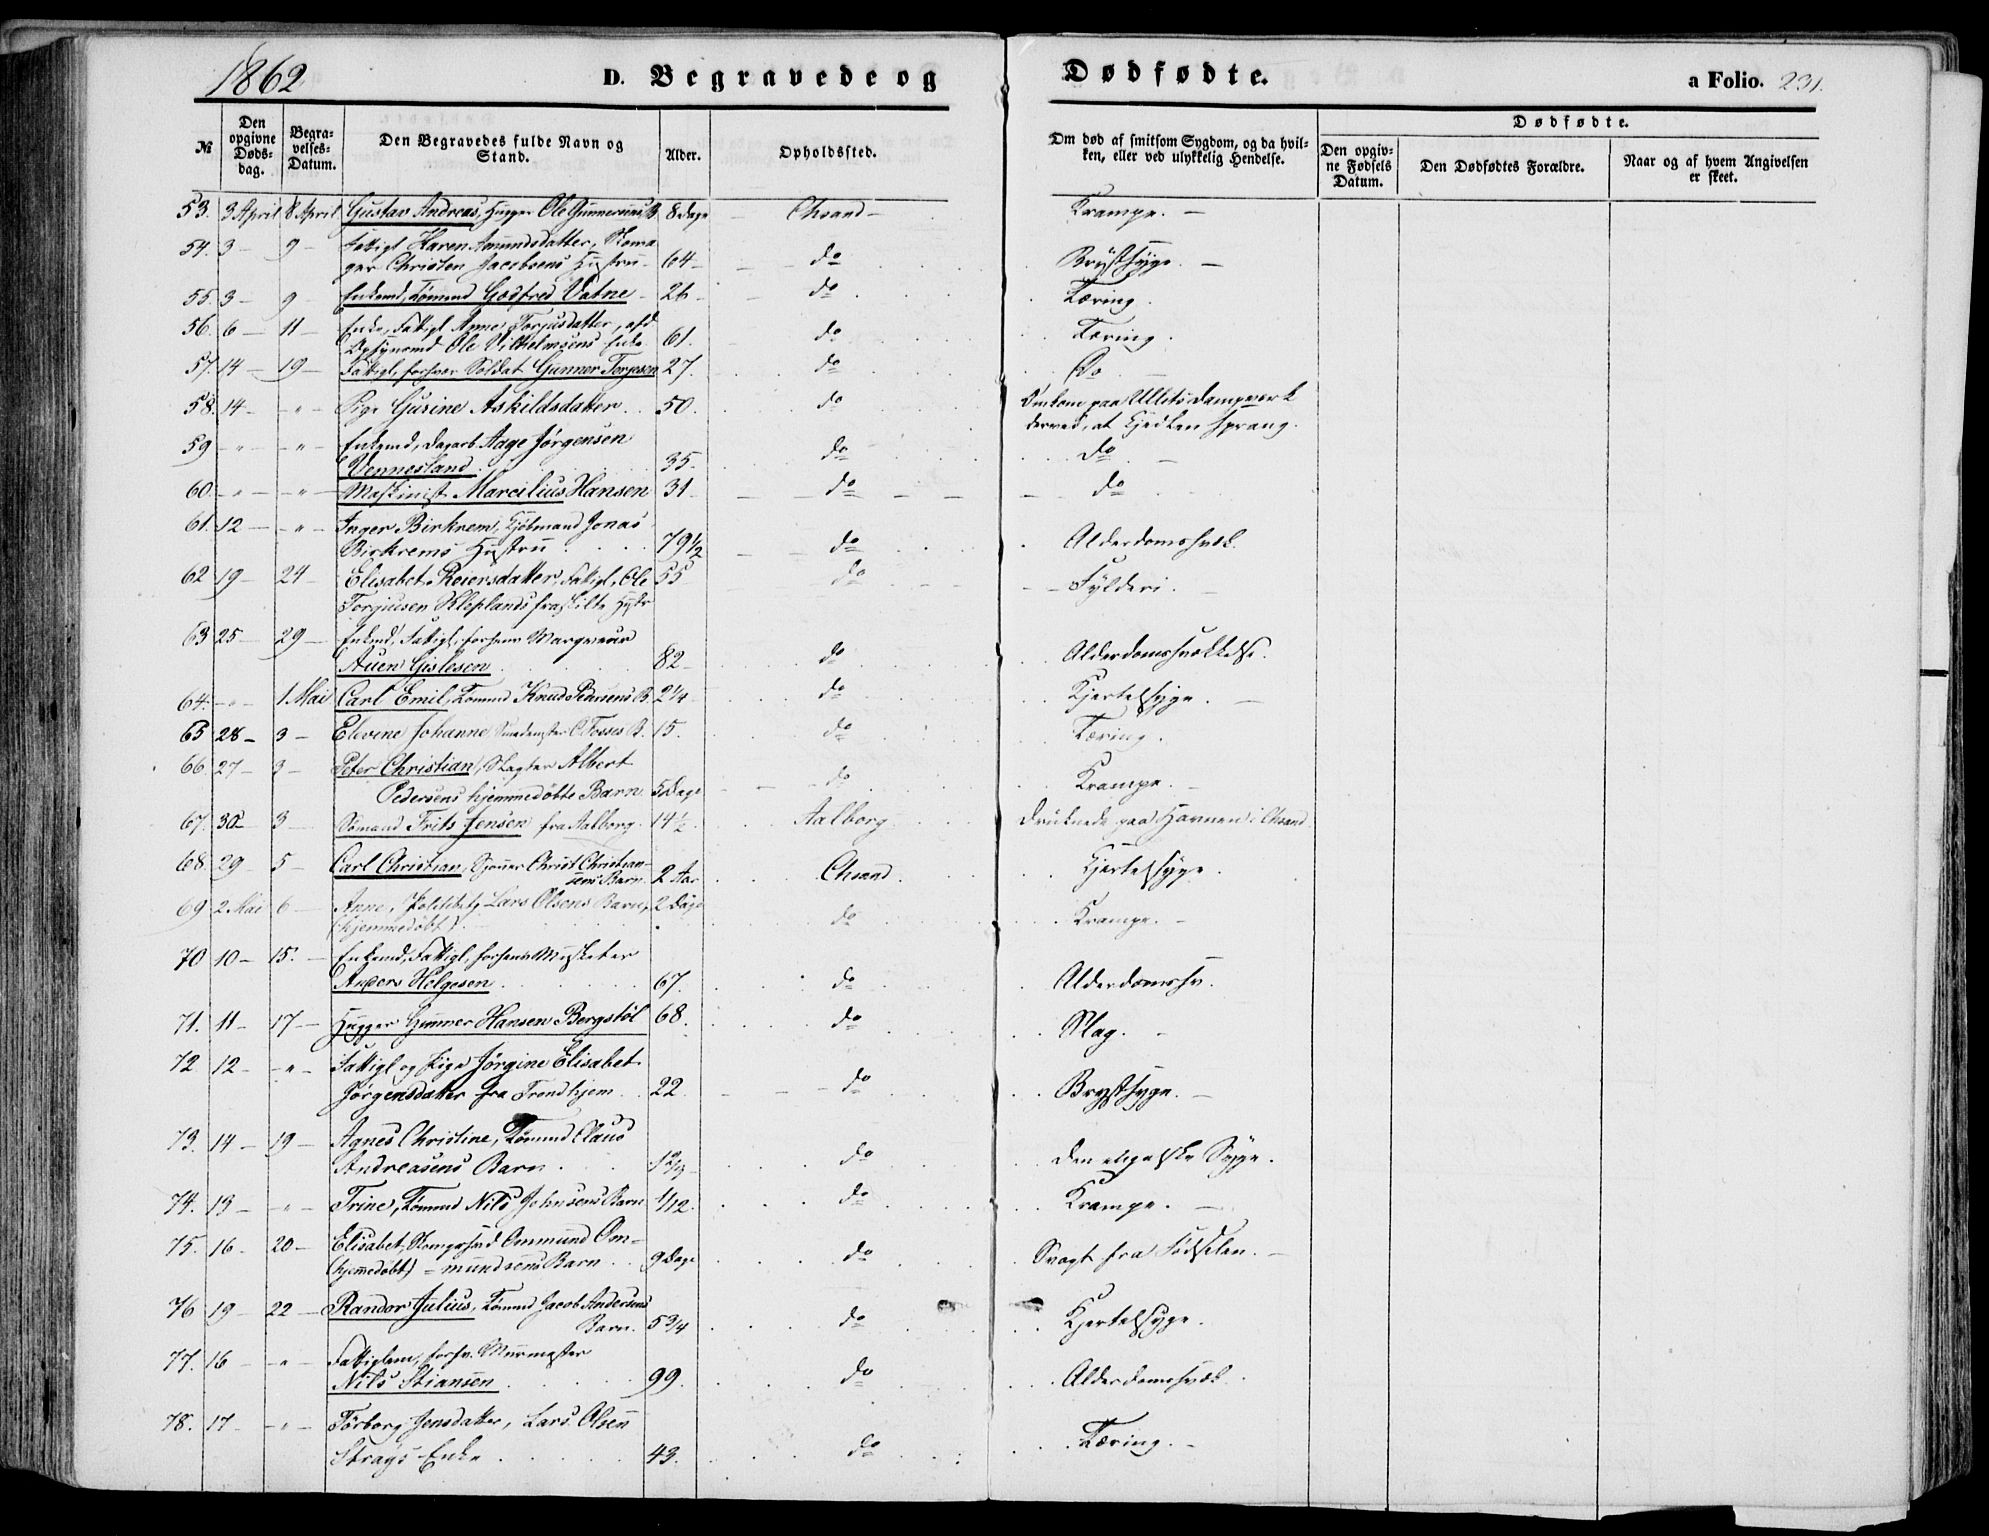 1862
D. Begravede og Dødfødte. a Folio. 231.
№ Den opgivne Døds-dag. Begra-velses-Datum. Den Begravedes fulde Navn og Stand. Alder. Opholdssted. Om død af smitsom Sygdom, og da hvil-ken, eller ved ulykkelig Hendelse. Dødfødte.
Den opgiv-ne Fødsels Datum. Den Dødfødtes Forældre. Naar og af hvem Angivelsen er skeet.
53. 3 April 8 April Gustav Andreas, Hugger Ole Gunnersens B. 8 Dage – Chsand – Krampe. –
54. 3 – 9 – Fattigl. Karen Amundsdatter, Skoma
ger Christen Jacobsens Hustru – 64 – do Brystsyge. –
55. 3 – 9 – Enkemd, Tømmd Godfred Vatne – 26 – do Tæring.
56. 6 – 11 – Enke, Fattigl. Anne Torjusdatter, afd
Opsynsmd Ole Vilhelmsens Enke. 61. do Tæring.
57. 14 – 19 – Fattigl. forhvær. Soldat Gunner Torjesen 27. do Do –
58. 14 – – " – Pige Gurine Askildsdatter. 50. do Omkom paa Ullits dampværk
derved, at Kjedlen sprang.
59 – " – – " – Enkemd, dagarb. Aage Jørgensen
Vennesland. 35. do do –
60. – " – – " – Maskinist Marcilius Hansen 31 – do – do
61. 12 – – " – Inger Birkrem, Kjøbmand Jonas
Birkrems Hustru. 79 1/2 do Alderdomssvæk.
62 19 – 24 – Elisabet Reiersdatter, Fattigl, Ole 55 do Fylderi.
Torjusen Kleplands fraskilte Hustr
63 25 – 29 – Enkmd, Fattigl. forhenv.
Auen Gislesen. 82 – do Alderdomssvækkelse.
64. – " – 1 Mai Carl Emil, Tømmd Knud Pedersens B. 2 1/4 do Kjertelsyge. –
65 28 – 3 – Elevine Johanne Smedmster O. Fosses B. 15. do Tæring.
66. 27 – 3 – Peter Christian, Slagter Albert
Pedersens hjemmedøbte Barn. 5 Dage do Krampe. –
67. 30 – 3 – Sømand Frits Jensen fra Aalborg. 14 1/2. Aalborg Druknede paa Havnen i Chsand
68. 29 – 5 – Carl Christian, Christ. Christian-
sens Barn. 2 Aar Chsand. Kjertelsyge.
69 2 Mai 6 – Anne, Politibtj. Lars Olsens Barn, 2 Dage
(hjemmedøbt). do Krampe. –
70 10 – 15. – Enkemd, Fattigl. forhenv. Musketer
Anders Helgesen. 67. do Alderdomssv.
71. 11 – 17 – Hugger Gunner Hansen Bergstöl 68. do Slag. –
72 12 – – " – Fattigl og Pige Jørgine Elisabet
Jørgensdatter fra Trondhjem 22. do Brystsyge. –
73. 14 – 19 – Agnes Christine, Tømmd Claus
Andreasens Barn. do Den engelske Syge.
74. 13 – – " – Trine, Tømmd Nils Johnsens Barn 1/12. do Krampe. –
75. 16 – 20 – Elisabet, Ommund Om-
(hjemmedøbt) = mundsens Barn. 9 Dage do Svagt fra Fødselen. –
76 19 – 22 – Randor Julius, Tømmd Jacob Andersens
Barn. 5 3/4 do Kjertelsyge.
77. 16 – – " – Fattiglem, forhv. Murmester
Nils Stiansen. 99. do Alderdomssvæk.
78. 17 – – " – Törborg Jensdatter, Lars Olsen
Strays Enke. 43. do Tæring. –